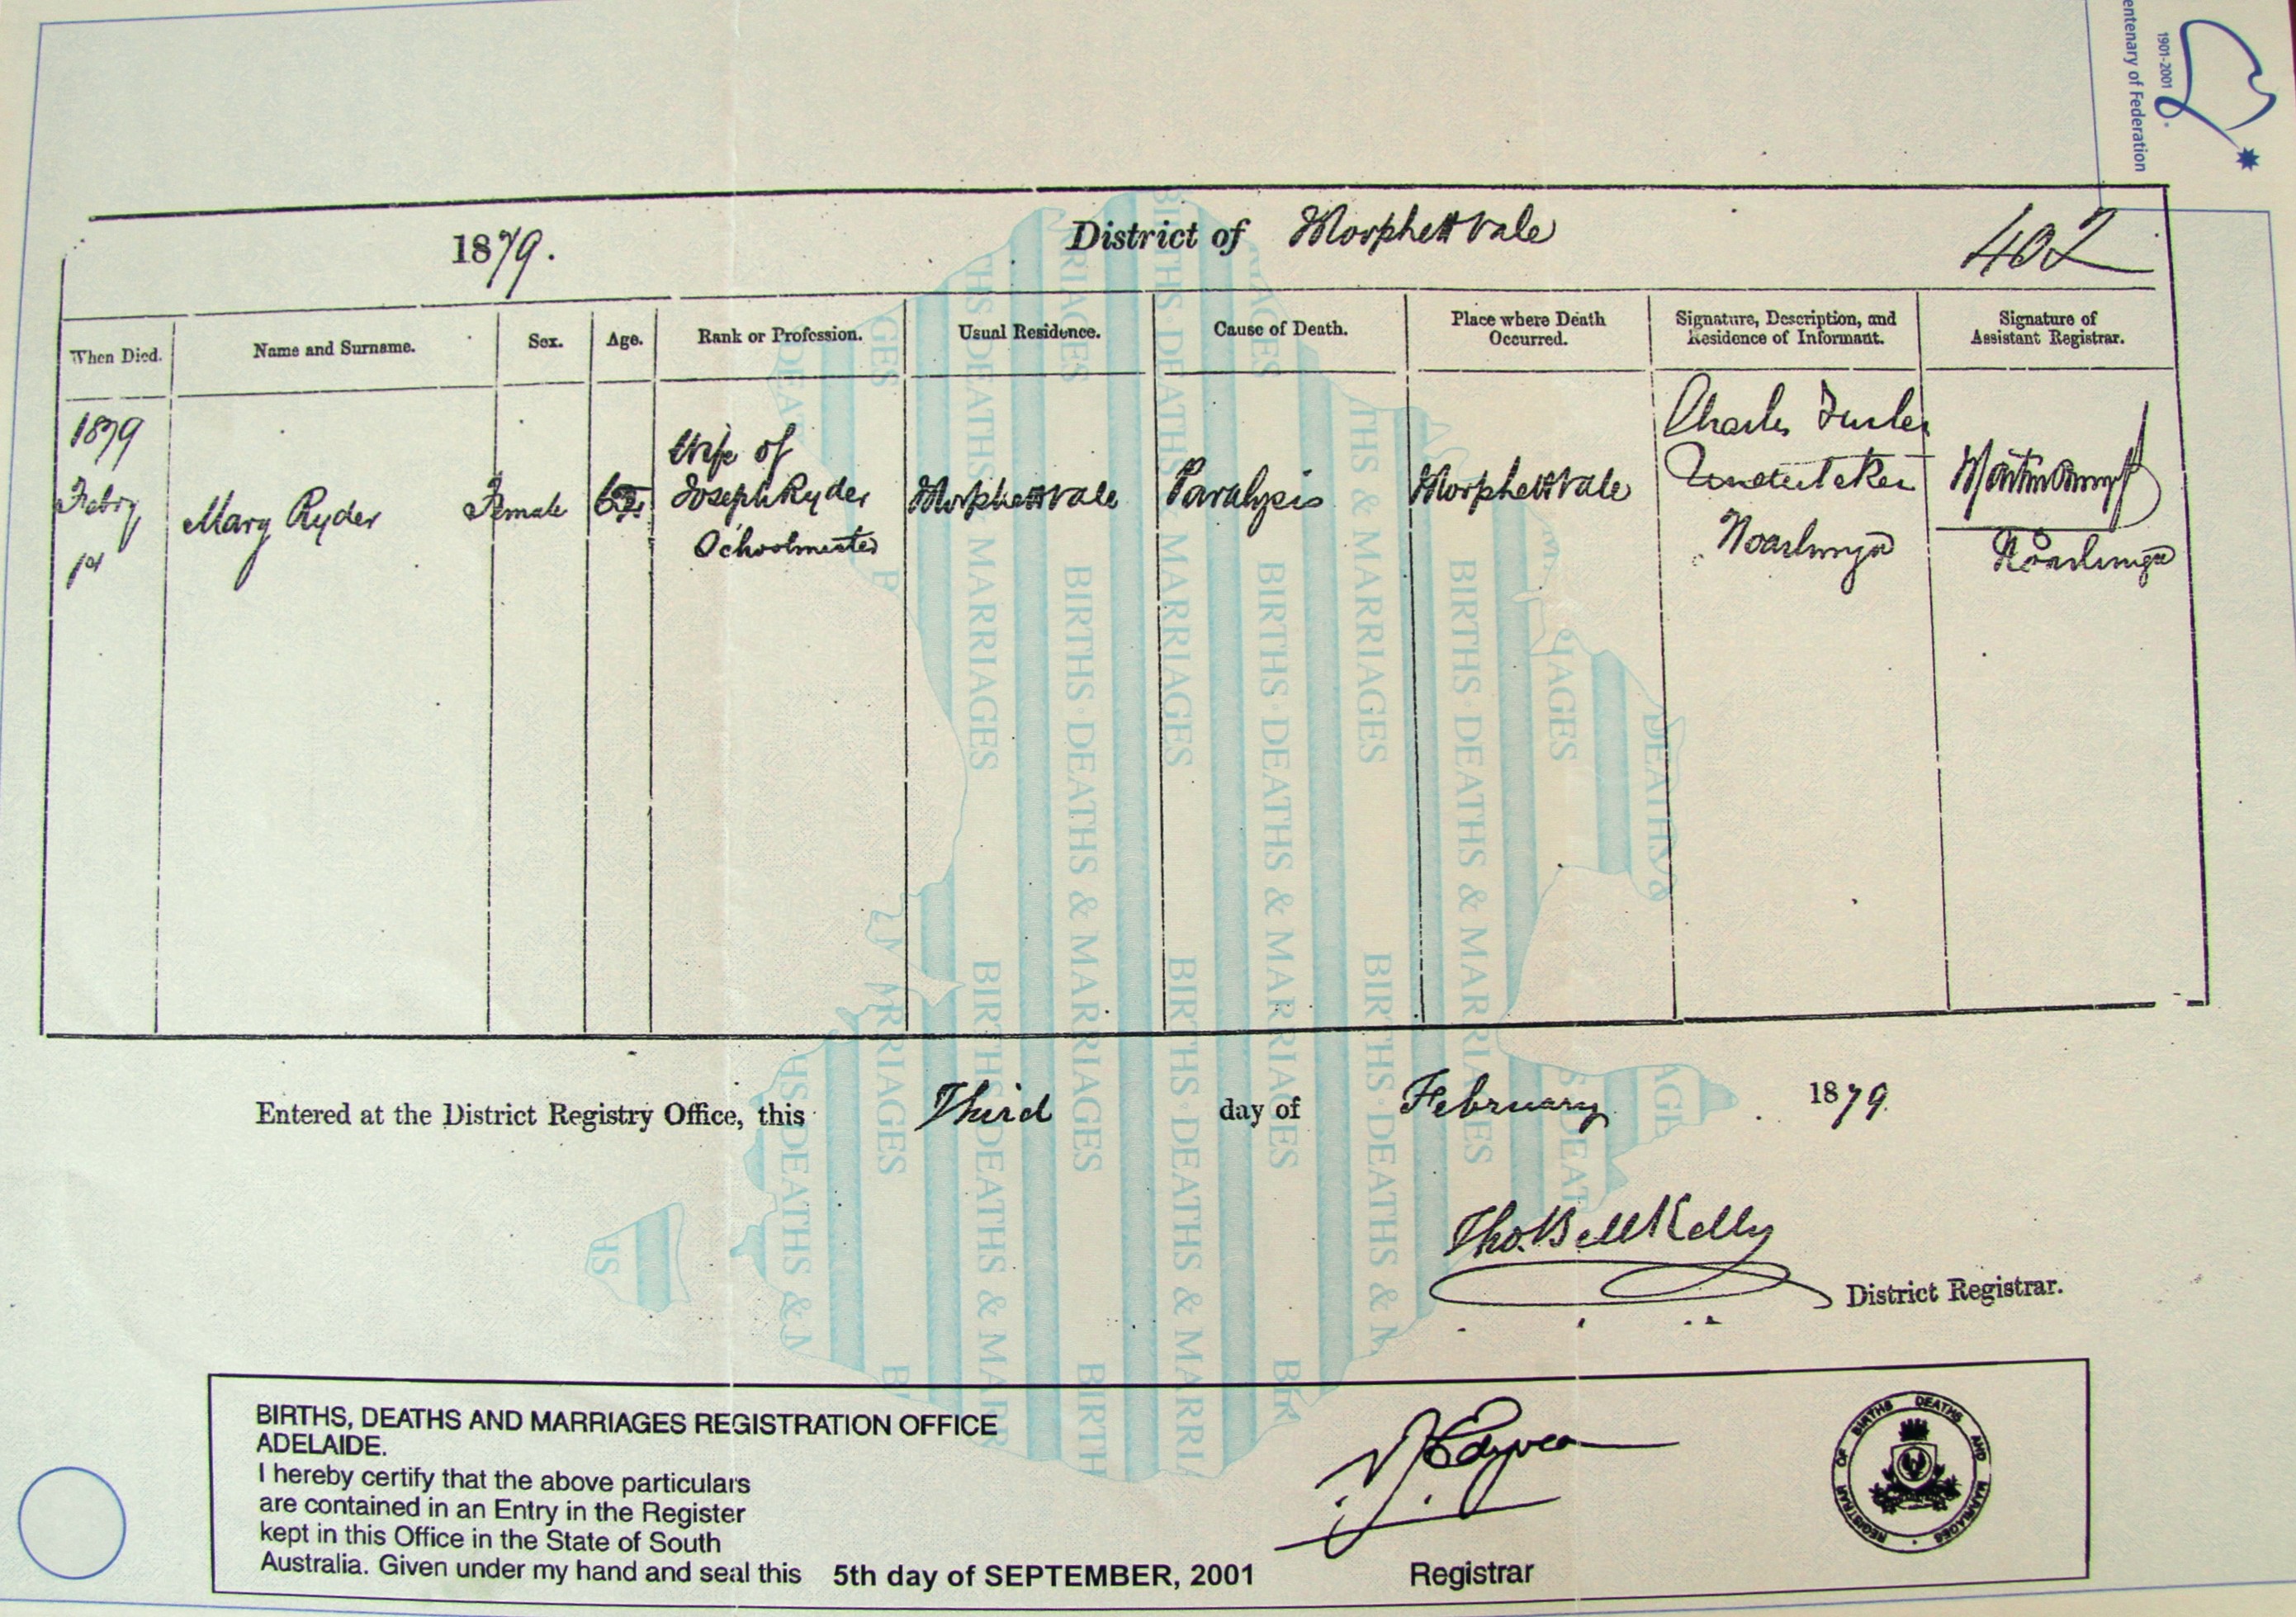 Centenary of Federation
1901-2001
1879.
District of Morphett Vale
402
When Died.
Name and Surname.
Sex.
Age.
Rank or Profession.
Usual Residence.
Cause of Death.
Place where Death
Occurred.
Signature, Description, and
Residence of Informant.
Signature of
Assistant Registrar.
1879
Febry
1st
Mary Ryder
Female
Wife of
Joseph Ryder
Schoolmaster
Morphett Vale
Paralysis
Morphett Vale
Charles
Undertaker
Noarlunga
Martin
Noarlunga
Entered at the District Registry Office, this Third day of February 1879.
Tho. Bell Kelly
District Registrar.
BIRTHS, DEATHS AND MARRIAGES REGISTRATION OFFICE
ADELAIDE.
I hereby certify that the above particulars
are contained in an Entry in the Register
kept in this Office in the State of South
Australia. Given under my hand and seal this 5th day of SEPTEMBER, 2001
Registrar
REGISTRAR OF BIRTHS DEATHS AND MARRIAGES
BIRTHS · DEATHS & MARRIAGES